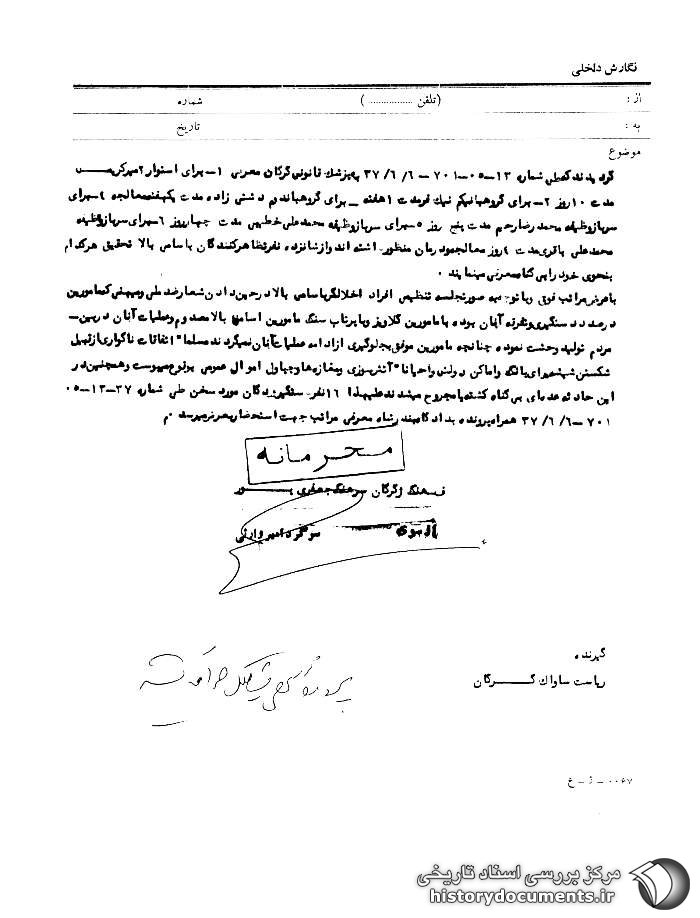 نگارش داخلی
از : (تلفن ................ ) شماره
به : تاریخ
موضوع
گردیدند که طی شماره ۱۳-۰۵-۷۰۱ - ۶/ ۶/ ۳۷ به پزشک قانونی گرگان معرفی ۱- برای استوار ۲
مدت ۱۰ روز ۲- برای گروهبان یکم مدت ۱ هفته - برای گروهبان دوم دشتی زاده مدت یکهفته معالجه ۴- برای
سرباز وظیفه محمد رضا رحیم مدت پنج روز ۵- برای سرباز وظیفه محمد علی خطیبی مدت چهار روز ۶- برای سرباز وظیفه
محمد علی باقری مدت ۴ روز معالجه و درمان منظور داشته اند و از شانزده نفر تظاهر کنندگان با سامی بالا تحقیق هر کدام
بنحوی خود را بی گناه معرفی مینمایند .
با عرض مراتب فوق و با توجه به صورتجلسه تنظیمی افراد اخلالگر با سامی بالا در حین دادن شعار ضد ملی و میهنی که مامورین
در صدد دستگیری و تفرقه آنان بوده با مامورین گلاویز و با پرتاب سنگ مامورین اسامی بالا مصدوم و عملیات آنان در بین -
مردم تولید وحشت نموده چنانچه مامورین موفق بجلوگیری از ادامه عملیات آنان نمیگردند مسلما" اتفاقات ناگواری از قبیل
شکستن شیشه های بانک و اماکن دولتی و احیانا" آتش سوزی و مغازه ها و چپاول اموال عمومی بوقوع میپیوست و همچنین در
این حادثه عده ای بی گناه کشته یا مجروح میشدند علیهذا ۱۶ نفر دستگیر شدگان مورد سخن طی شماره ۳۷-۱۳-۰۵
۷۰۱ - ۶/ ۶/ ۳۷ همراه پرونده بدادگاه معرفی مراتب جهت استحضار بعرض میرسد . م
محرمانه
گرگان سرهنگ جعفری
سرگرد امیر وارثی
گیرنده
ریاست ساواک گرگان
۰۰۶۷ - ذ - ع
مرکز بررسی اسناد تاریخی
historydocuments.ir